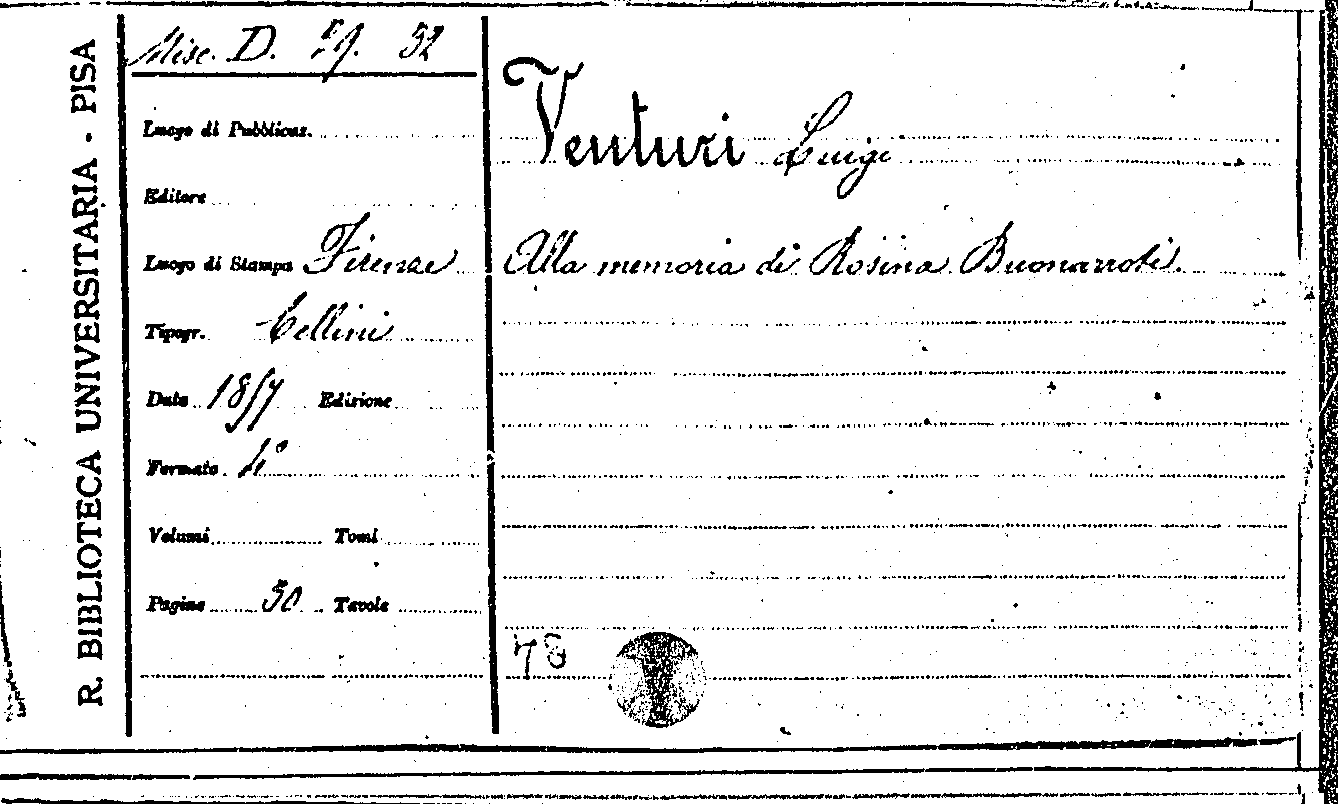 R. BIBLIOTECA UNIVERSITARIA - PISA
Misc. D. 59. 32
Luogo di Pubblicaz.
Editore
Luogo di Stampa Firenze
Tipogr. Cellini
Data 1857 Edizione
Formato 4°
Volumi Tomi
Pagine 30 Tavole
Venturi Luigi
Alla memoria di Rosina Buonarroti.
78